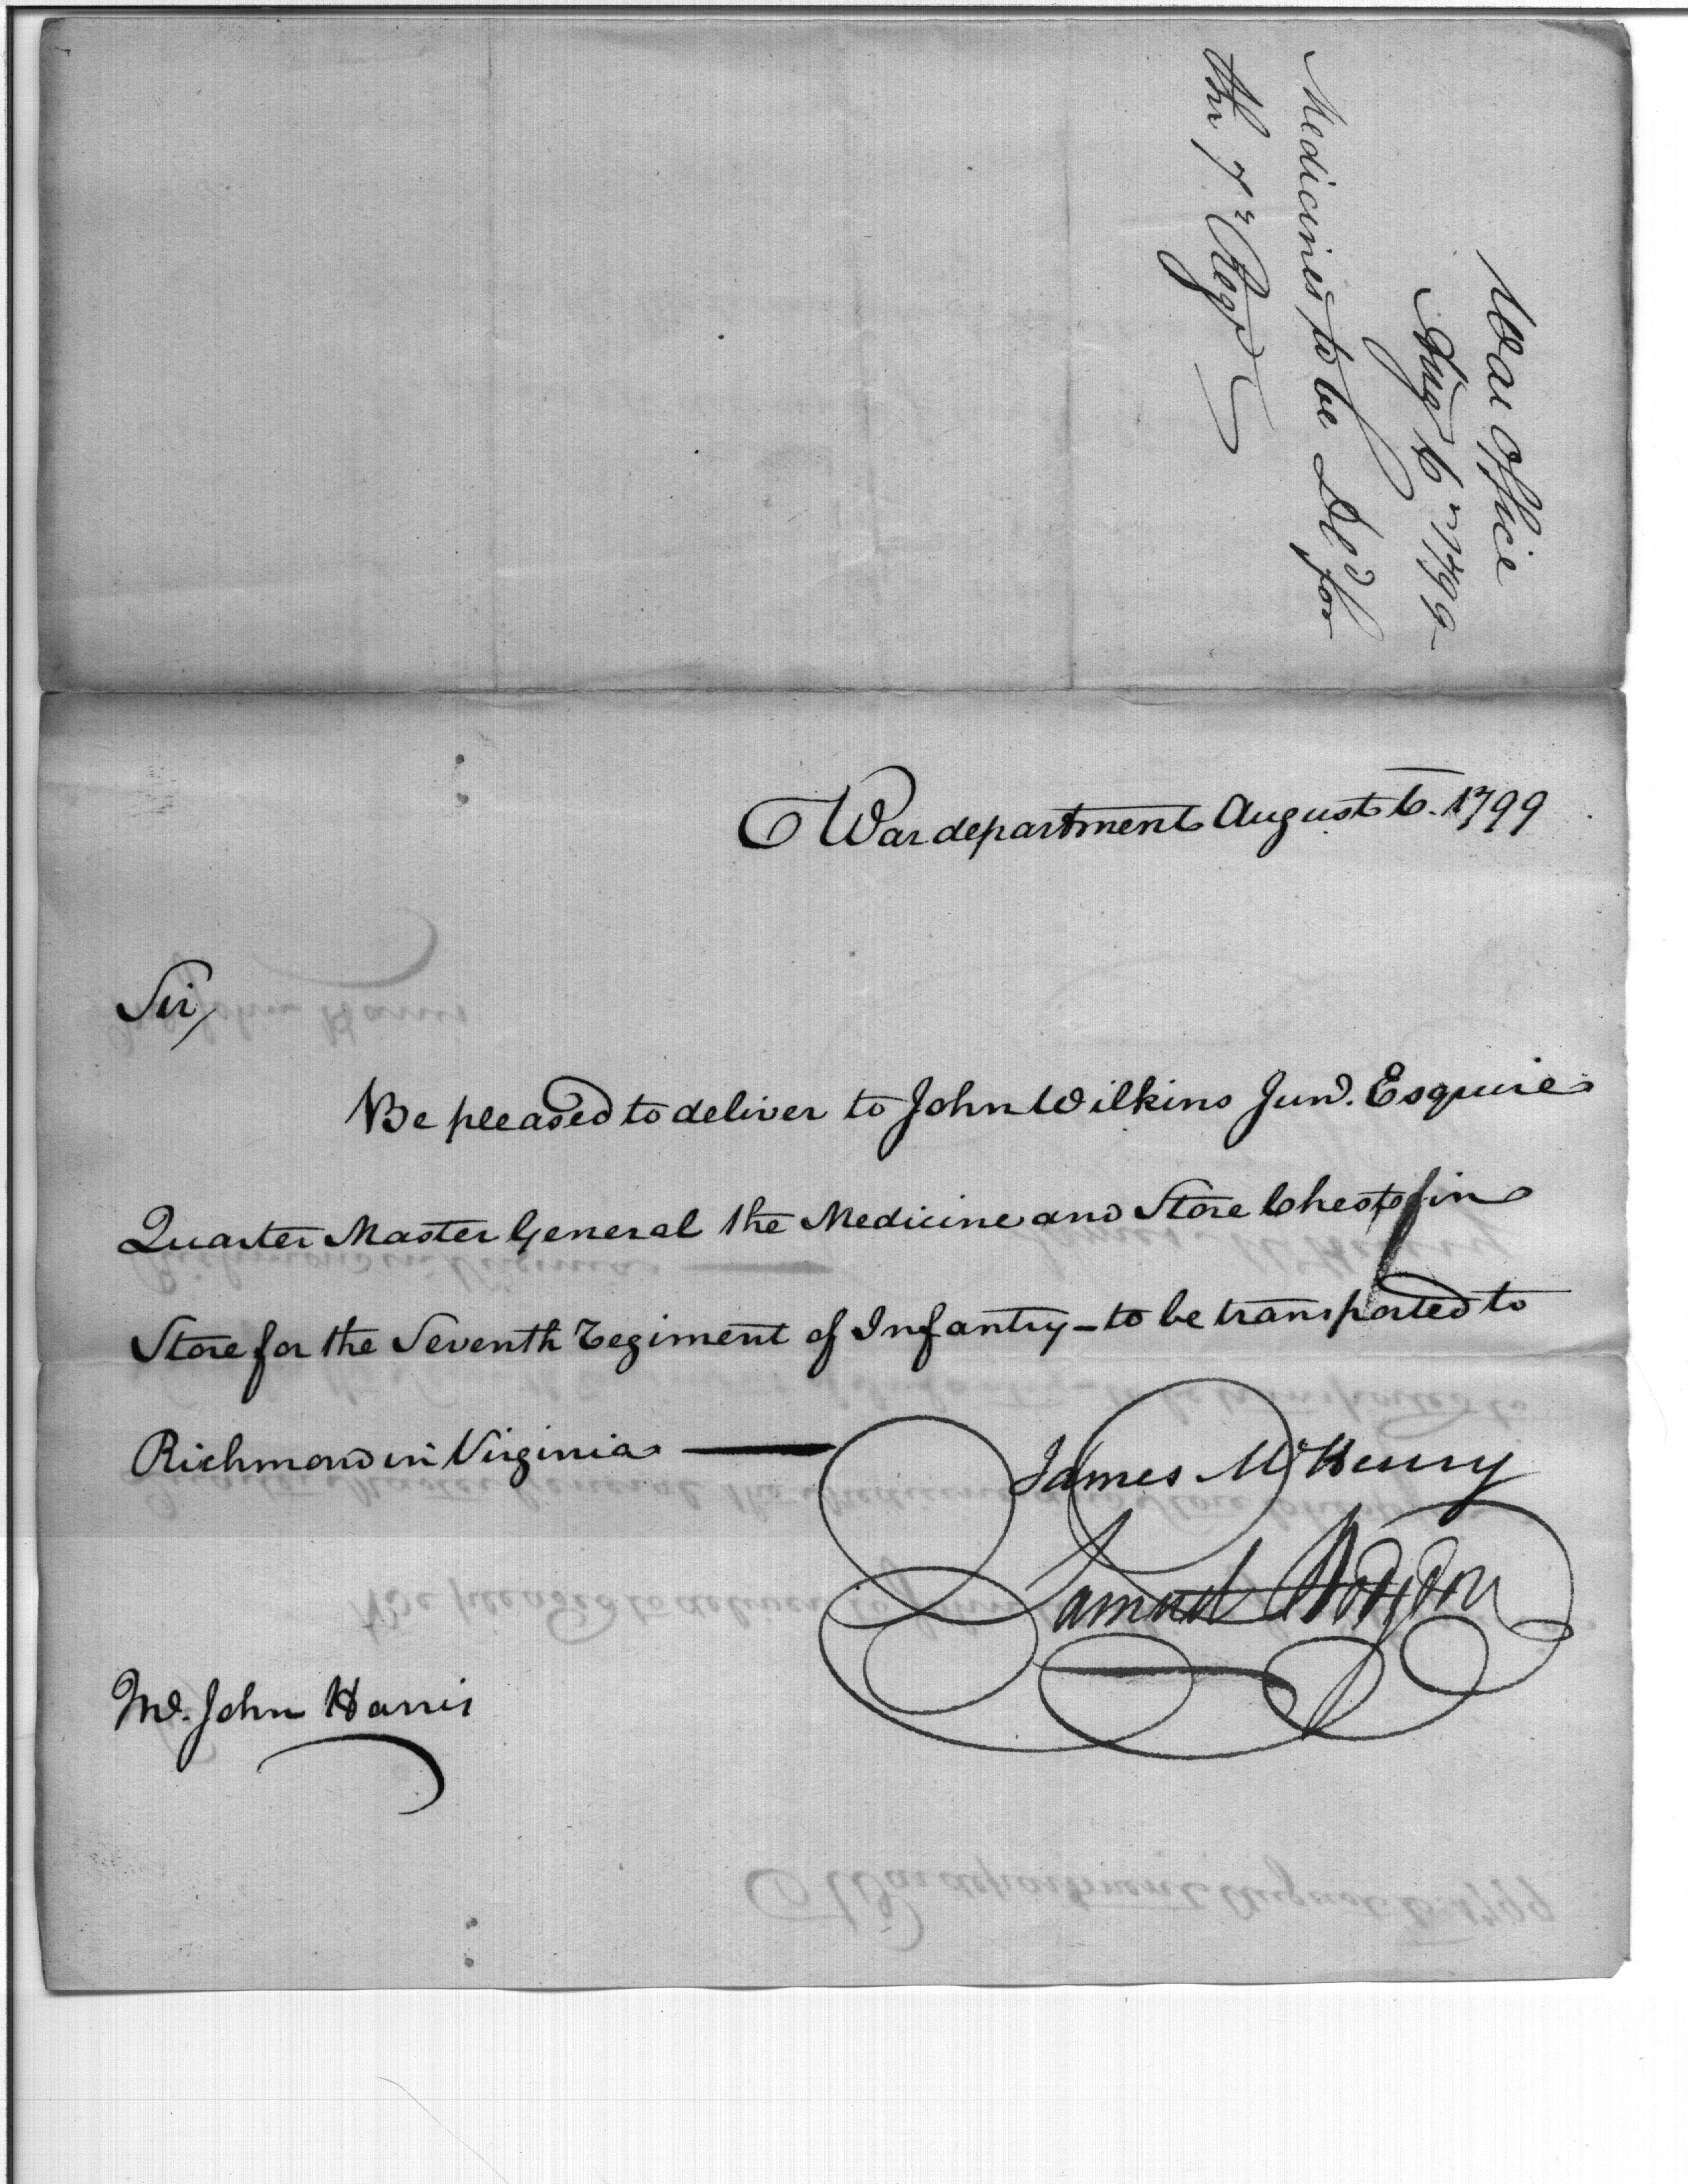 War Office
Aug 6 1799
Medicines to be Del'd for
the 7th Regt
War department August 6. 1799
Sir,
Be pleased to deliver to John Wilkins Junr. Esquire
Quarter Master General the Medicine and Store Chests in
Store for the Seventh Regiment of Infantry - to be transported to
Richmond in Virginia —
James McHenry
Samuel Hodgdon
Mr. John Harris